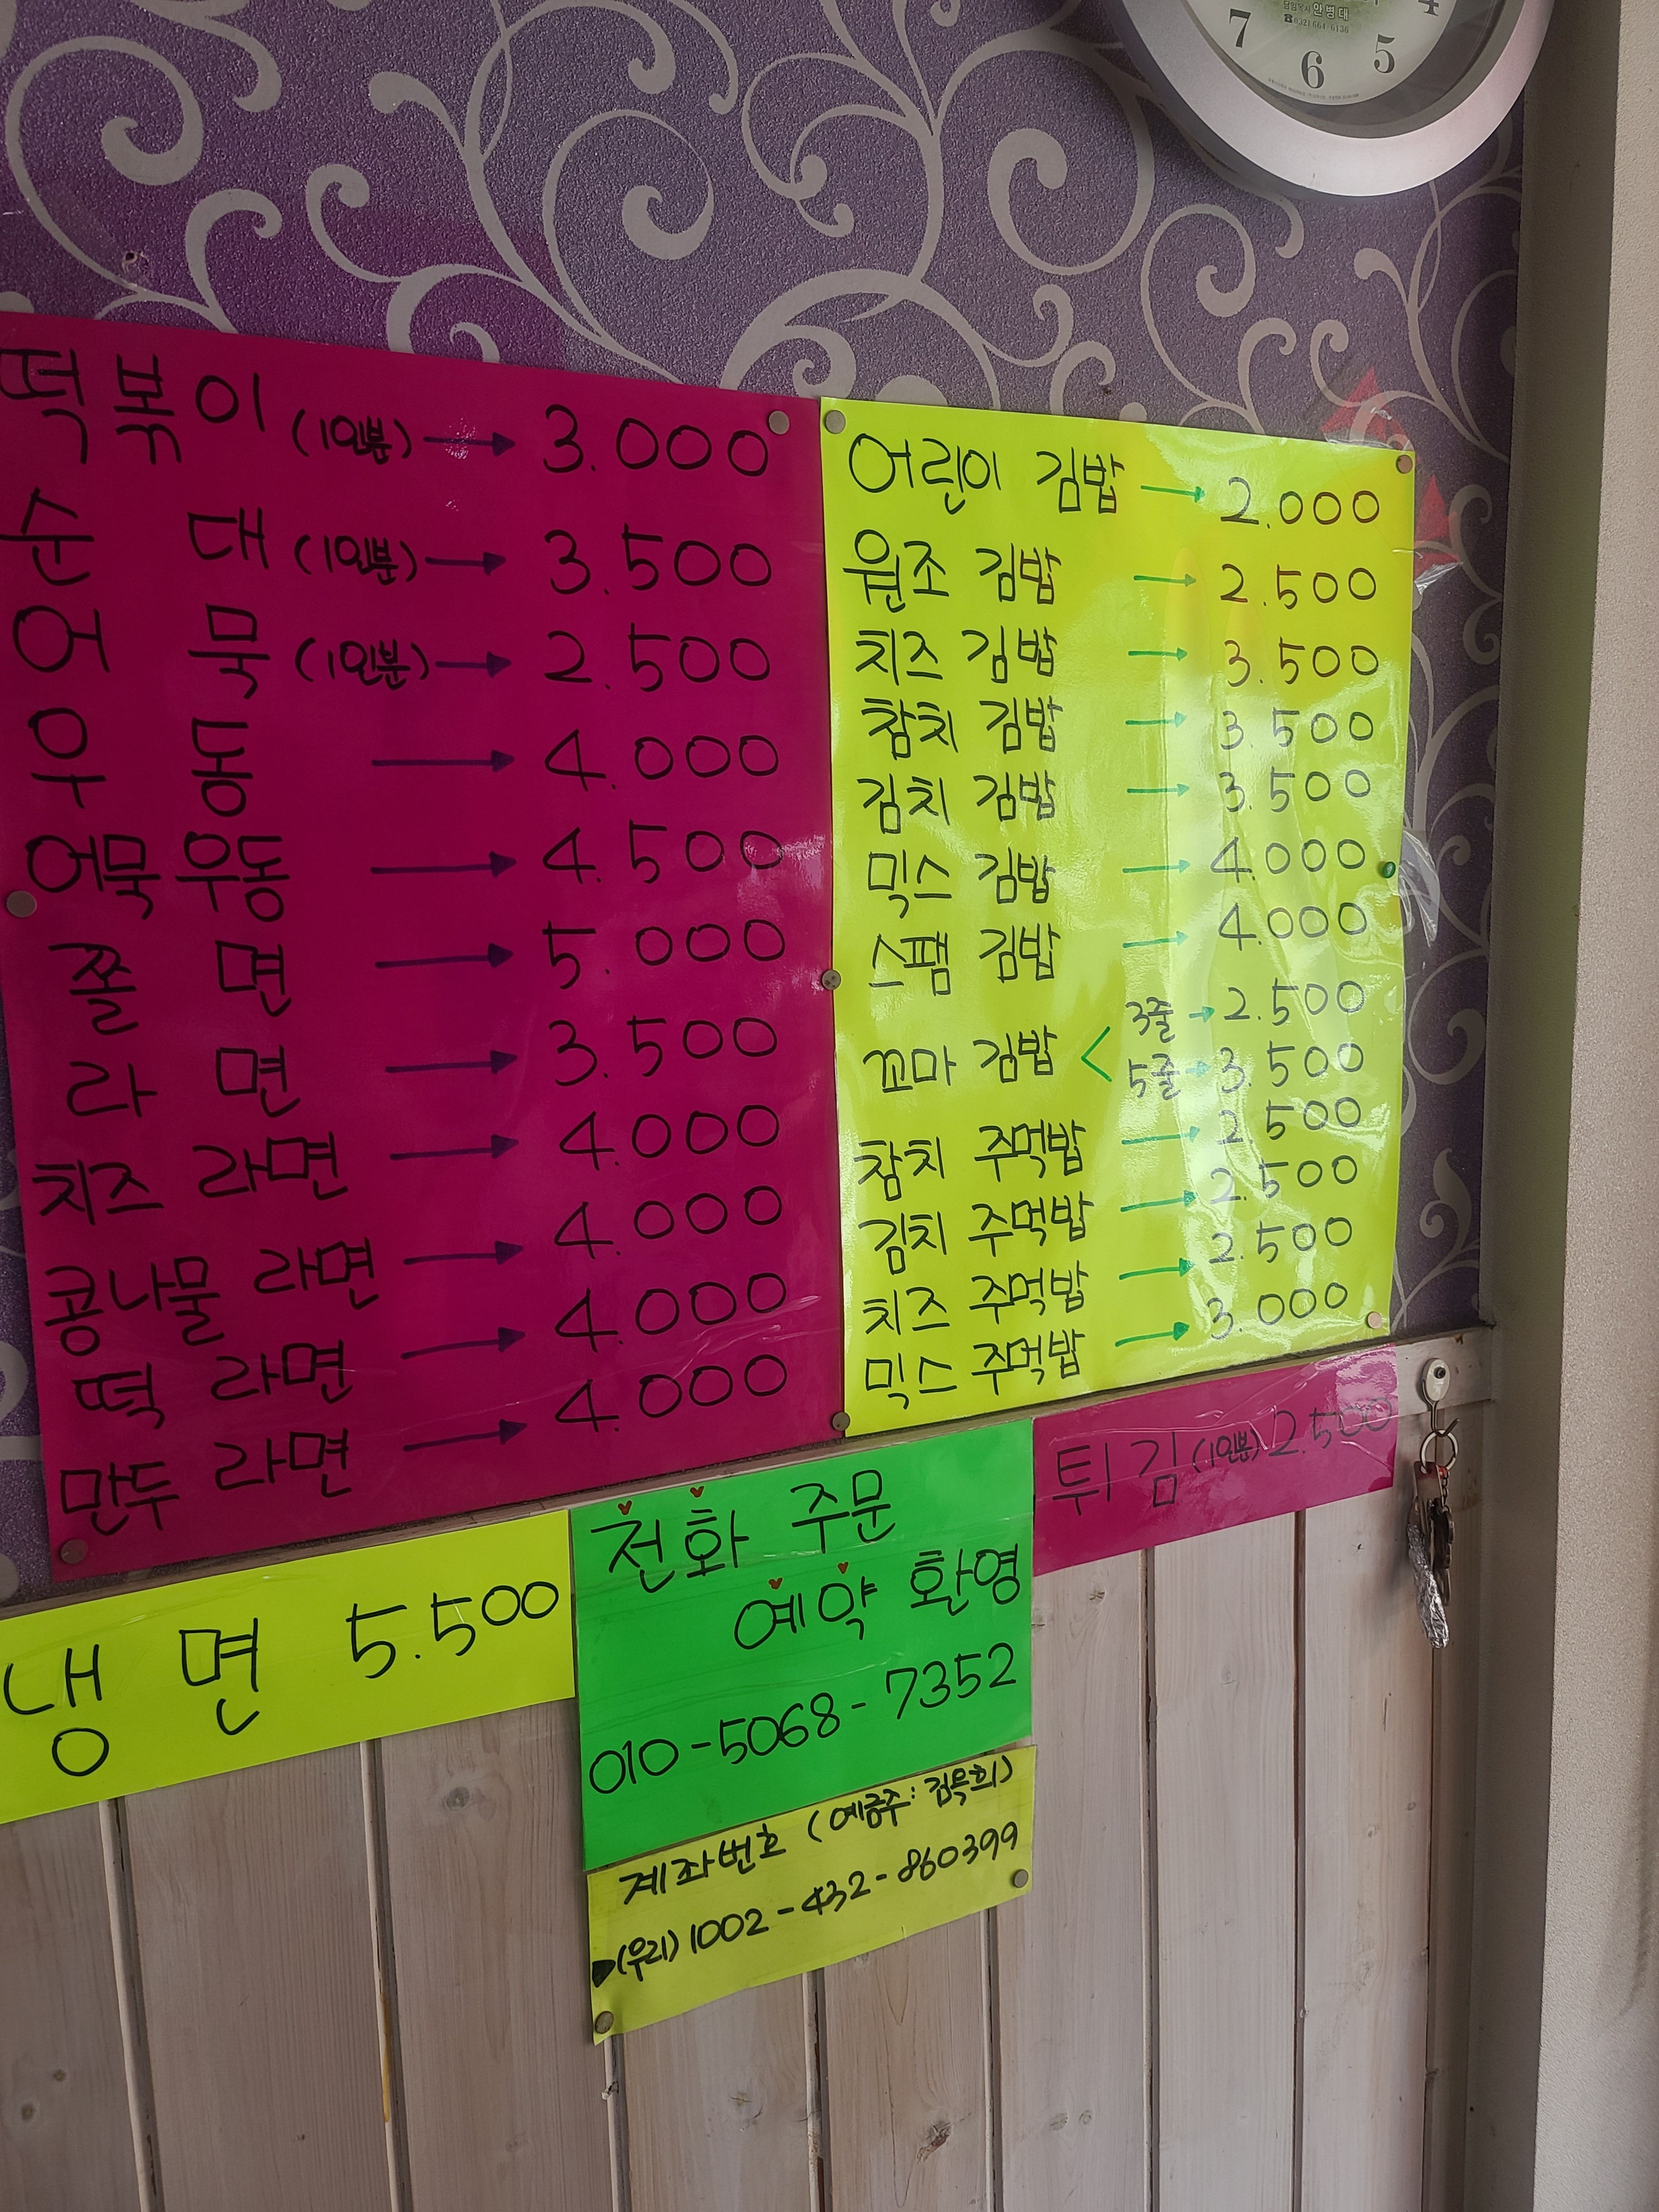 4
7
5
6
안병대
떡볶이 (1인분) → 3.000
순 대 (1인분) → 3.500
어 묵 (1인분) → 2.500
우 동 → 4.000
어묵우동 → 4.500
쫄 면 → 5.000
라 면 → 3.500
치즈 라면 → 4.000
콩나물 라면 → 4.000
떡 라면 → 4.000
만두 라면 → 4.000
어린이 김밥 → 2.000
원조 김밥 → 2.500
치즈 김밥 → 3.500
참치 김밥 → 3.500
김치 김밥 → 3.500
믹스 김밥 → 4.000
스팸 김밥 → 4.000
꼬마 김밥 < 3줄 → 2.500
5줄 → 3.500
참치 주먹밥 → 2.500
김치 주먹밥 → 2.500
치즈 주먹밥 → 2.500
믹스 주먹밥 → 3.000
튀김 (1인분) 2.500
냉 면 5.500
전화 주문
예약 환영
010-5068-7352
계좌번호 (예금주:
(우리) 1002-432-860399